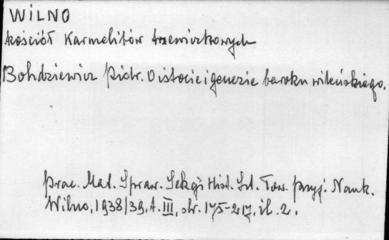 WILNO
kościół Karmelitów trzewiczkowych
Bohdziewicz Piotr. O istocie i genezie baroku wileńskiego.
Prac. Mat. Spraw. Sekcji Hist. Szt. Tow. Przyj. Nauk.
Wilno, 1938/39. t. III, str. 175-217, il. 2.